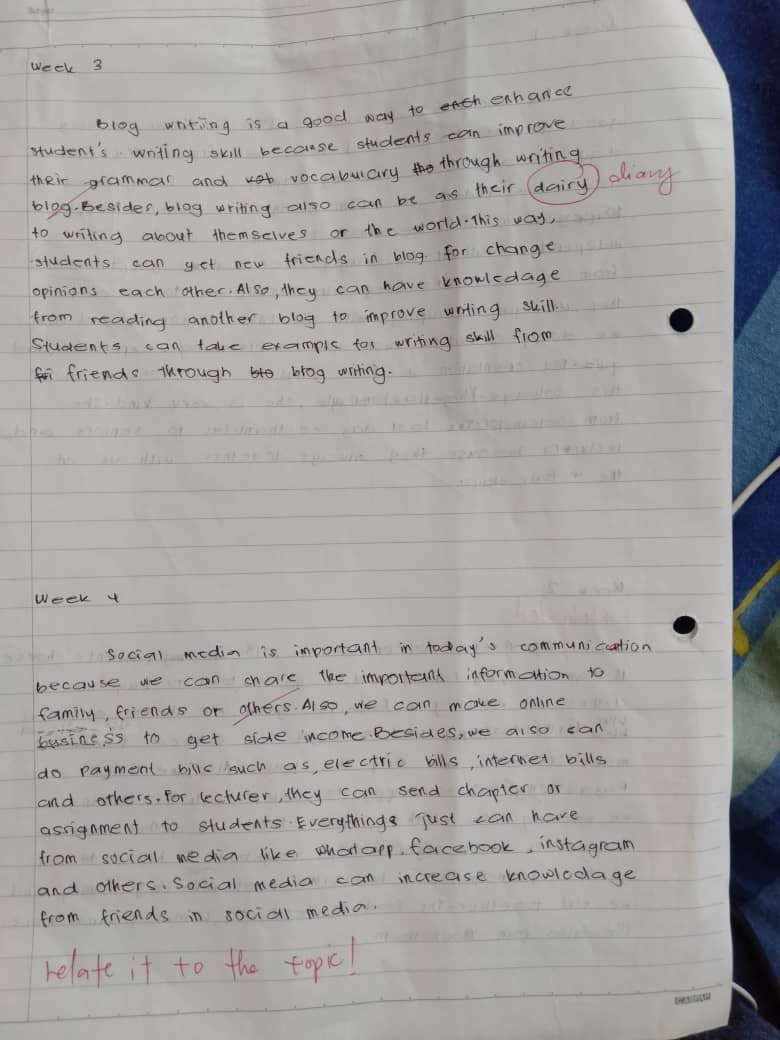 Week 3
Blog writiing is a good way to each enhance
student's writing skill because students can improve
their grammar and vob vocabulary tho through writing
blog. Besides, blog writing also can be as their dairy diary
to writing about themselves or the world. This way,
students can get new friends in blog for change
opinions each other. Also, they can have knowledage
from reading another blog to improve writing skill.
Students can take example for writing skill from
friends through blog writing.
Week 4
Social media is important in today's communication
because we can share the important information to
family, friends or others. Also, we can make online
business to get side income. Besides, we also can
do payment bills such as, electric bills, internet bills
and others. For lecturer, they can send chapter or
assignment to students. Everythings just can have
from social media like whatapp, facebook, instagram
and others. Social media can increase knowledage
from friends in social media.
relate it to the topic!
CAMPAP